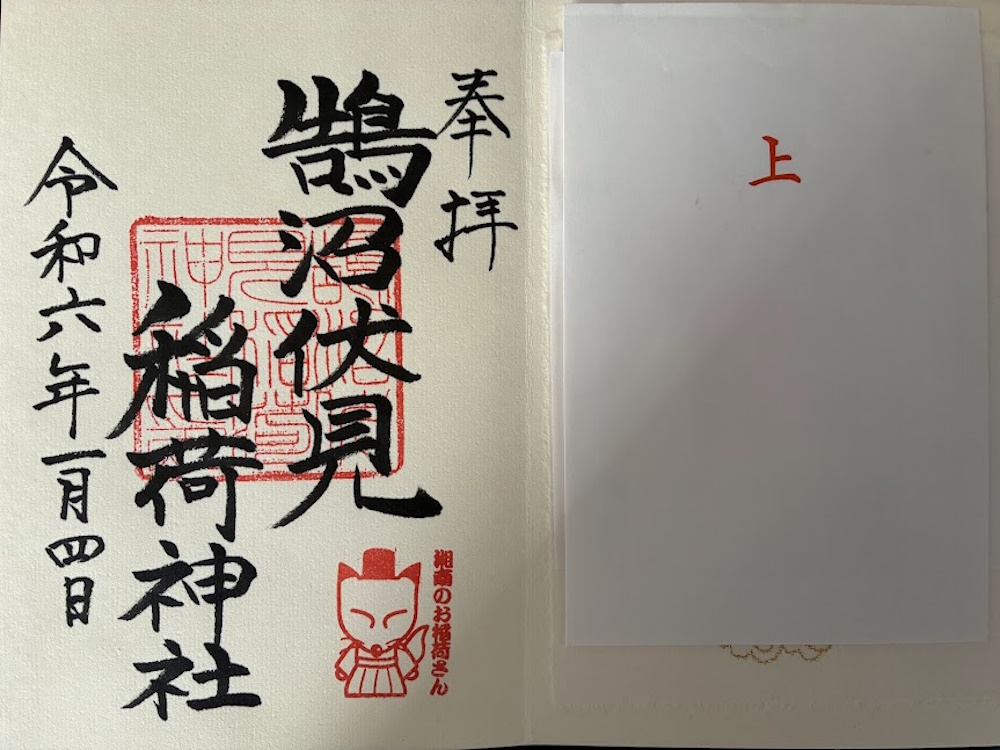 上
奉拝
鵠沼伏見
稲荷神社
令和六年一月四日
湘南のお稲荷さん